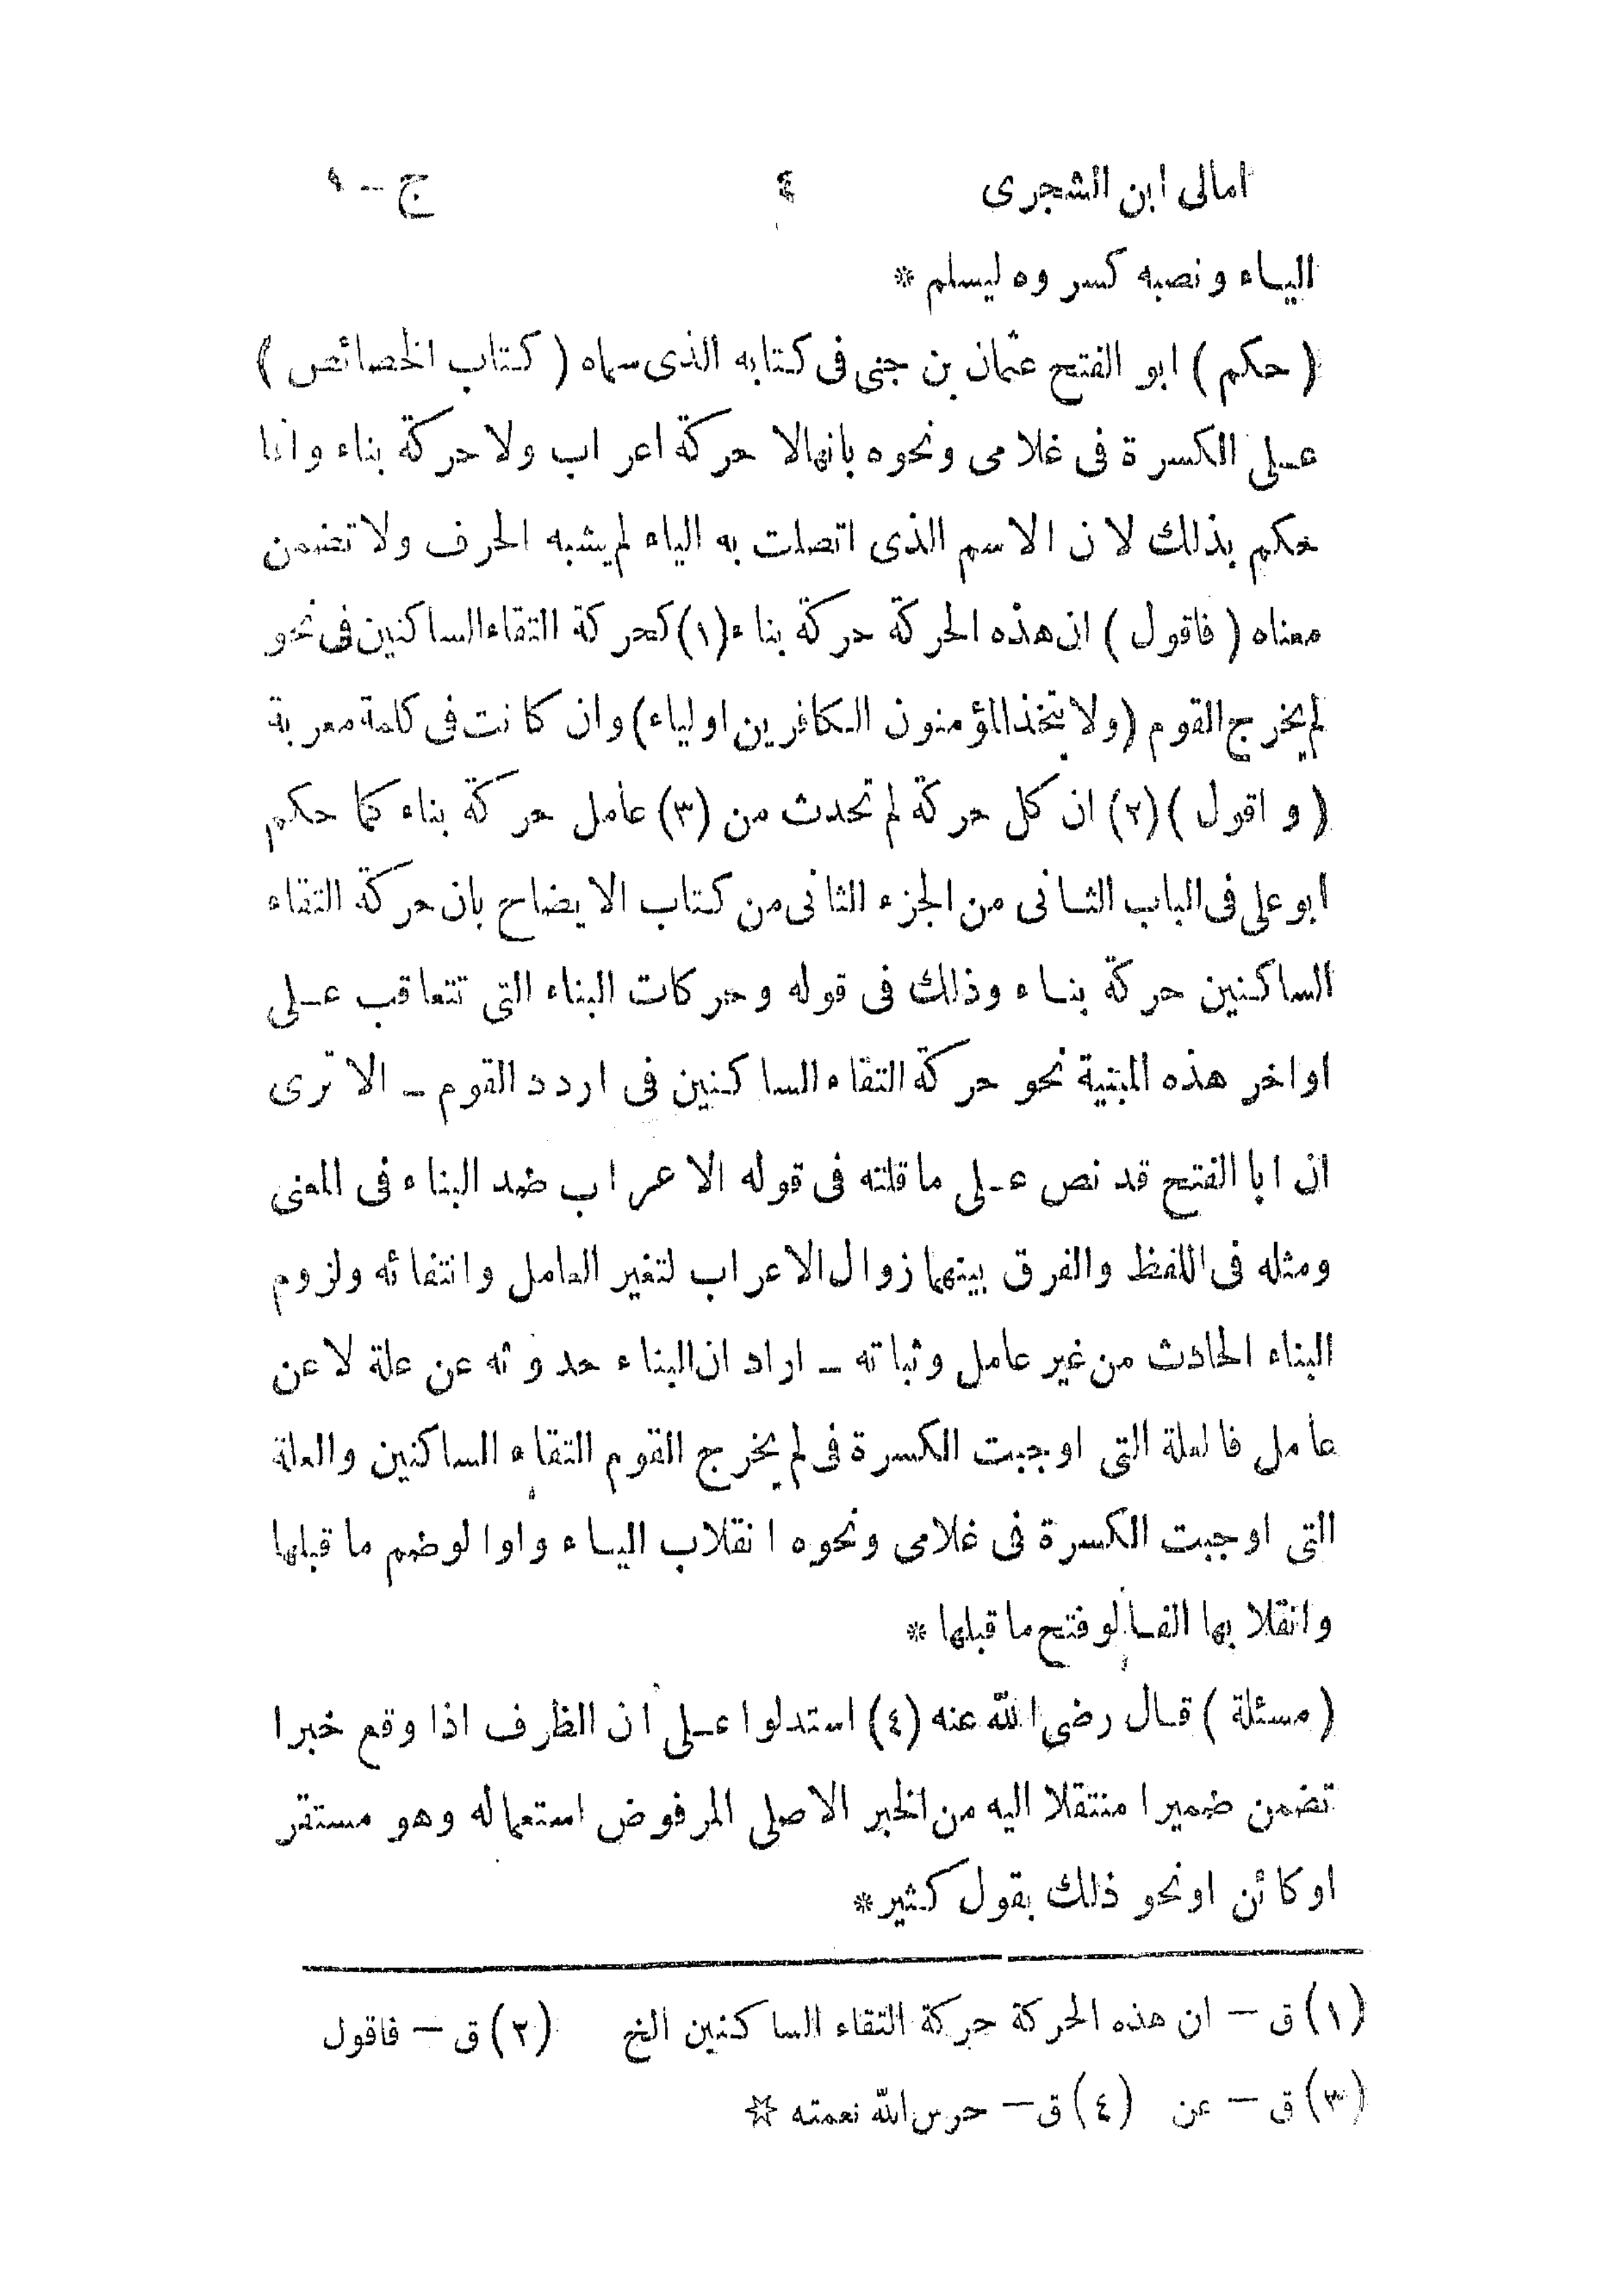 امالى ابن الشجرى ٤ ج – ١
الياء ونصبه كسروه ليسلم *
( حكم ) ابو الفتح عثمان بن جنى فى كتابه الذى سماه ( كتاب الخصائص )
على الكسرة فى غلامى ونحوه بانها لا حركة اعراب ولا حركة بناء وانما
حكم بذلك لان الاسم الذى اتصلت به الياء لم يشبه الحرف ولا تضمن
معناه ( فاقول ) ان هذه الحركة حركة بناء (١) كحركة التقاء الساكنين فى نحو
لم يخرج القوم (ولا يتخذ المؤمنون الكافرين اولياء) وان كانت فى كلمة معربة
( واقول ) (٢) ان كل حركة لم تحدث من (٣) عامل حركة بناء كما حكم
ابو على فى الباب الثانى من الجزء الثانى من كتاب الايضاح بان حركة التقاء
الساكنين حركة بناء وذلك فى قوله وحركات البناء التى تتعاقب على
اواخر هذه المبنية نحو حركة التقاء الساكنين فى اردد القوم – الا ترى
ان ابا الفتح قد نص على ما قلته فى قوله الاعراب ضد البناء فى المعنى
ومثله فى اللفظ والفرق بينهما زوال الاعراب لتغير العامل وانتفائه ولزوم
البناء الحادث من غير عامل وثباته – اراد ان البناء حدوثه عن علة لا عن
عامل فالعلة التى اوجبت الكسرة فى لم يخرج القوم التقاء الساكنين والعلة
التى اوجبت الكسرة فى غلامى ونحوه انقلاب الياء واوا لو ضم ما قبلها
وانقلابها الفا لو فتح ما قبلها *
( مسئلة ) قال رضى الله عنه (٤) استدلوا على ان الظرف اذا وقع خبرا
تضمن ضميرا منتقلا اليه من الخبر الاصلى المرفوض استعماله وهو مستقر
اوكائن اونحو ذلك بقول كثير *
(١) ق – ان هذه الحركة حركة التقاء الساكنين الخ (٢) ق – فاقول
(٣) ق – عن (٤) ق – حرس الله نعمته ☆